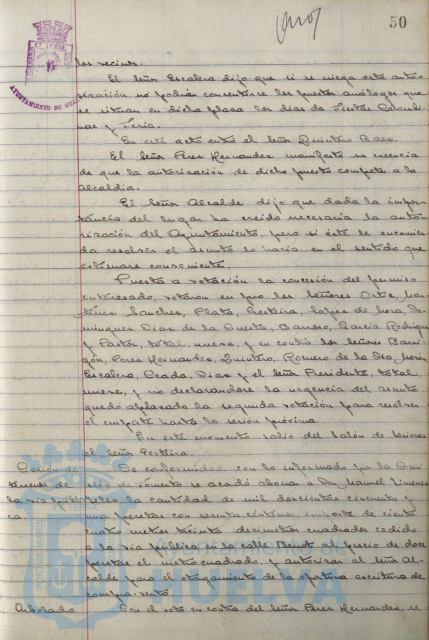 50
los vecinos.
El señor Escalera dijo que si se niega esta auto-
rización no podrán consentirse los puestos análogos que
se sitúan en dicha plaza los días de Fiestas Colombi-
nas y Feria.
En este acto entró el señor Quintero Baez.
El señor Perez Hernandez manifestó su creencia
de que la autorización de dicho puesto compete a la
Alcaldía.
El señor Alcalde dijo que dada la impor-
tancia del lugar ha creido necesaria la auto-
rización del Ayuntamiento, pero si éste le encomien-
da resolver el asunto lo haría en el sentido que
estimare conveniente.
Puesta a votación la concesión del permiso
interesado, votaron en pro los señores Ortiz, Mar-
tínez Sanchez, Plata, Tejera, Lopez de Mora, Do-
minguez Diaz de la Questa, Barroso, García Rodriguez
y Pastor, total, nueve, y en contra los señores Barri-
gón, Perez Hernandez, Quintero, Romero de la Osa,
Escalera, Ceada, Diaz y el señor Presidente, total,
nueve, y no declarandose la urgencia del asunto
quedó aplazada la segunda votación para resolver
el empate hasta la sesión próxima.
En este momento salió del salón de sesiones
el señor
Cesión de
terrenos de
la vía públi-
ca.
De conformidad con lo informado por la Comi-
sión de Fomento se acordó abonar a Don Manuel
la cantidad de mil doscientas cincuenta y
una pesetas con sesenta céntimos, importe de ciento
cuatro metros treinta decimetros cuadrados cedido
a la vía pública en la calle Benot al precio de doce
pesetas el metro cuadrado, y autorizar al señor Al-
calde para el otorgamiento de la oportuna escritura de
compra-venta.
Arbolado
Con el voto en contra del señor Perez Hernandez, se
AYUNTAMIENTO DE
HUELVA